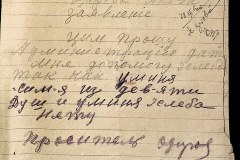 заявление
Цим прошу
Администрацію дать
мне допомогу хлеба
так как уминя
семя из девяти
душ и уминя хлеба
нету
Проситель